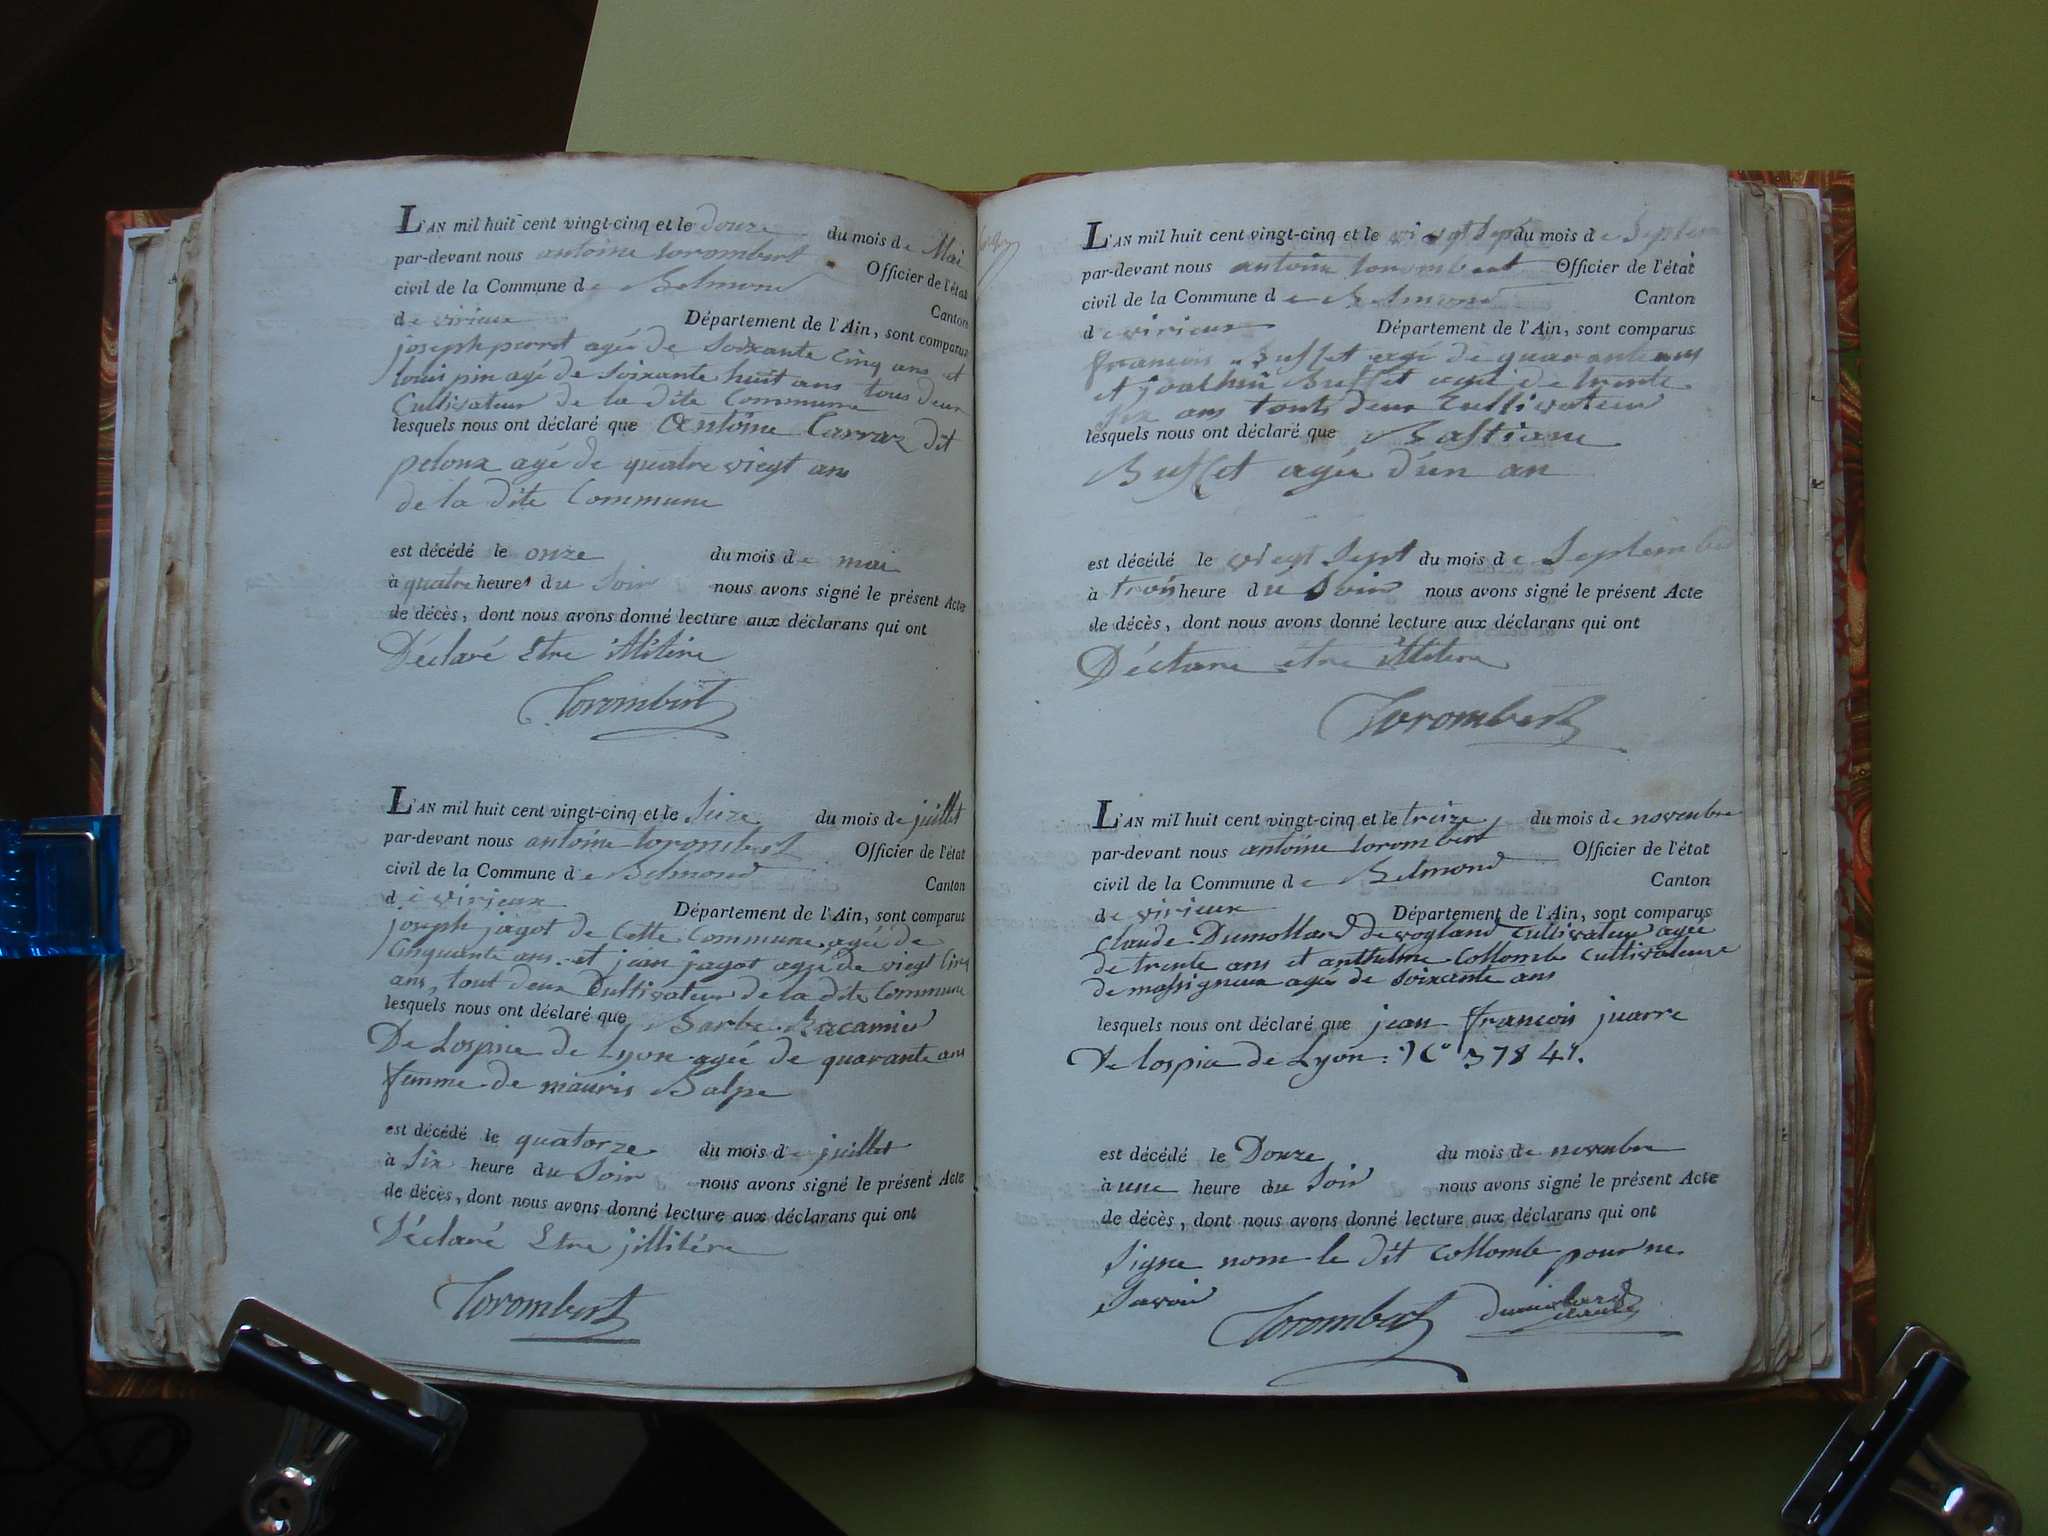 L'AN mil huit cent vingt-cinq et le douze du mois de Mai
par-devant nous antoine torombert Officier de l'état
civil de la Commune de Belmond Canton
de virieux Département de l'Ain, sont comparus
joseph perret agé de Soixante Cinq ans et
louis pin agé de Soixante huit ans tous deux
Cultivateur de la dite Commune
lesquels nous ont déclaré que Antoine Carraz dit
peloux agé de quatre viegt ans
de la dite Commune
est décédé le onze du mois de mai
à quatre heures du Soir nous avons signé le présent Acte
de décès, dont nous avons donné lecture aux déclarans qui ont
Déclaré Etre illitére
Torombert
L'AN mil huit cent vingt-cinq et le Seize du mois de juillet
par-devant nous antoine torombert Officier de l'état
civil de la Commune de Belmond Canton
de virieux Département de l'Ain, sont comparus
joseph jagot de Cette Commune agée de
Cinquante ans et jean jagot agée de viegt Cinq
ans, tout deux Cultivateur de la dite Commune
lesquels nous ont déclaré que Barbe Racamier
De Lospice de Lyon agée de quarante ans
femme de mauris Balpe
est décédé le quatorze du mois de juillet
à Six heure du Soir nous avons signé le présent Acte
de décès, dont nous avons donné lecture aux déclarans qui ont
Déclaré Etre jillitére
Torombert
L'AN mil huit cent vingt-cinq et le viegt Sept du mois de Septem
par-devant nous antoine torombert Officier de l'état
civil de la Commune de Belmond Canton
de virieux Département de l'Ain, sont comparus
francois Buffet agé de quarante ans
et joachin Buffet agé de trente
Six ans touts deux Cultivateur
lesquels nous ont déclaré que Bastiane
Buffet agée d'un an
est décédé le viegt Sept du mois de Septembre
à trois heure du Soir nous avons signé le présent Acte
de décès, dont nous avons donné lecture aux déclarans qui ont
Déclare etre illitere
Torombert
L'AN mil huit cent vingt-cinq et le treize du mois de novenbre
par-devant nous antoine torombert Officier de l'état
civil de la Commune de Belmond Canton
de virieux Département de l'Ain, sont comparus
Claude Dumollard de vogland Cultivateur agée
de trente ans et anthelme Collombe Cultivateur
de massigneux agée de Soixante ans
lesquels nous ont déclaré que jean francois juarre
De lospice de Lyon: N° 3784
est décédé le Douze du mois de novenbre
à une heure du Soir nous avons signé le présent Acte
de décès, dont nous avons donné lecture aux déclarans qui ont
Signe nom le dit Collombe pour ne
Savoir
Torombert